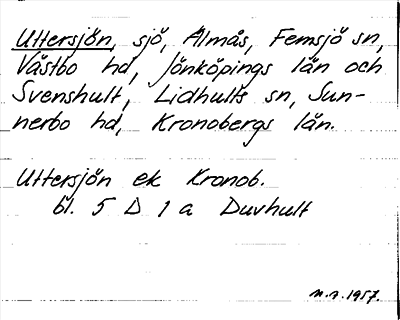 Uttersjön, sjö, Älmås, Femsjö sn,
Västbo hd, Jönköpings län och
Svenshult, Lidhults sn, Sun-
nerbo hd, Kronobergs län.
Uttersjön ek Kronob.
bl. 5 D 1 a Duvhult
n.n. 1957.